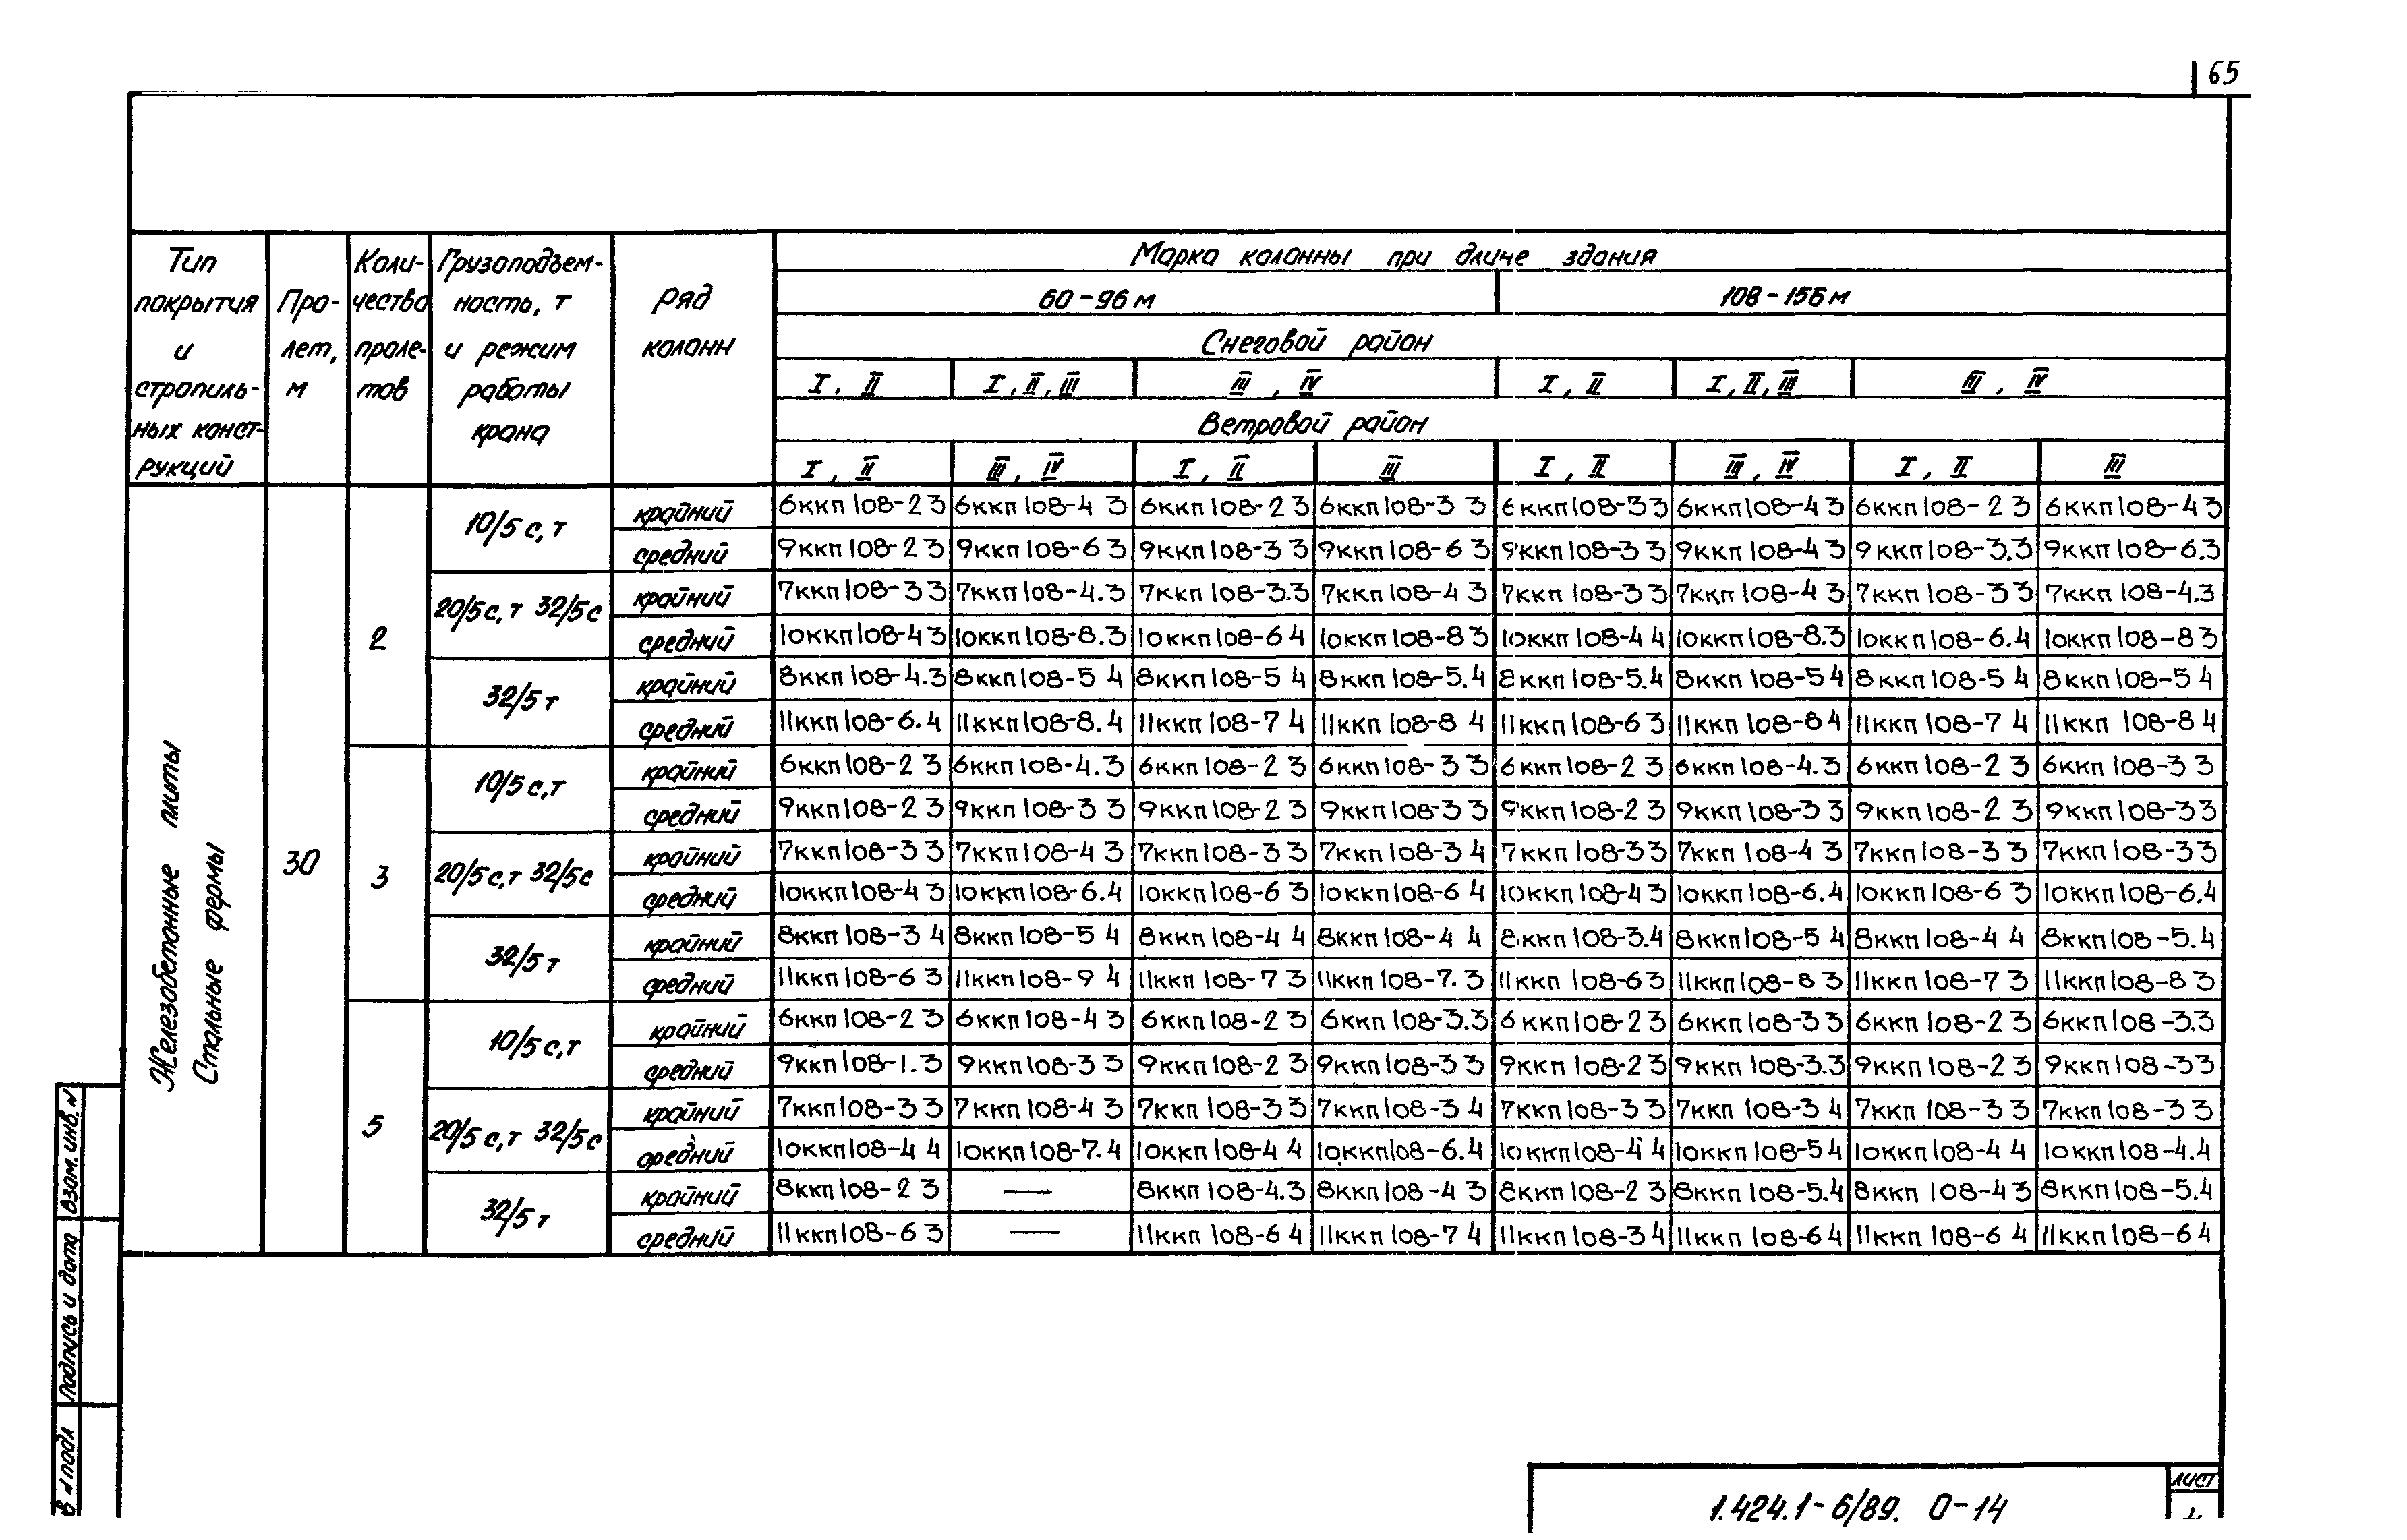 65
Тип покрытия и стропильных конструкций
Пролет, м
Количество пролетов
Грузоподъемность, т и режим работы крана
Ряд колонн
Марка колонны при длине здания
60-96 м 108-156 м
Снеговой район
I, II I, II, III III, IV I, II I, II, III III, IV
Ветровой район
I, II III, IV I, II III I, II III, IV I, II III
Железобетонные плиты
Стальные фермы
30
2
10/5 с, т
крайний 6ккп108-23 6ккп108-43 6ккп108-23 6ккп108-33 6ккп108-33 6ккп108-43 6ккп108-23 6ккп108-43
средний 9ккп108-23 9ккп108-63 9ккп108-33 9ккп108-63 9ккп108-33 9ккп108-43 9ккп108-3.3 9ккп108-6.3
20/5 с, т 32/5 с
крайний 7ккп108-33 7ккп108-4.3 7ккп108-3.3 7ккп108-43 7ккп108-33 7ккп108-43 7ккп108-33 7ккп108-4.3
средний 10ккп108-43 10ккп108-8.3 10ккп108-64 10ккп108-83 10ккп108-44 10ккп108-8.3 10ккп108-6.4 10ккп108-83
32/5 т
крайний 8ккп108-4.3 8ккп108-54 8ккп108-54 8ккп108-5.4 8ккп108-5.4 8ккп108-54 8ккп108-54 8ккп108-54
средний 11ккп108-6.4 11ккп108-8.4 11ккп108-74 11ккп108-84 11ккп108-63 11ккп108-84 11ккп108-74 11ккп108-84
3
10/5 с, т
крайний 6ккп108-23 6ккп108-4.3 6ккп108-23 6ккп108-33 6ккп108-23 6ккп108-4.3 6ккп108-23 6ккп108-33
средний 9ккп108-23 9ккп108-33 9ккп108-23 9ккп108-33 9ккп108-23 9ккп108-33 9ккп108-23 9ккп108-33
20/5 с, т 32/5 с
крайний 7ккп108-33 7ккп108-43 7ккп108-33 7ккп108-34 7ккп108-33 7ккп108-43 7ккп108-33 7ккп108-33
средний 10ккп108-43 10ккп108-6.4 10ккп108-63 10ккп108-64 10ккп108-43 10ккп108-6.4 10ккп108-63 10ккп108-6.4
32/5 т
крайний 8ккп108-34 8ккп108-54 8ккп108-44 8ккп108-44 8ккп108-3.4 8ккп108-54 8ккп108-44 8ккп108-5.4
средний 11ккп108-63 11ккп108-94 11ккп108-73 11ккп108-7.3 11ккп108-63 11ккп108-83 11ккп108-73 11ккп108-83
5
10/5 с, т
крайний 6ккп108-23 6ккп108-43 6ккп108-23 6ккп108-3.3 6ккп108-23 6ккп108-33 6ккп108-23 6ккп108-3.3
средний 9ккп108-1.3 9ккп108-33 9ккп108-23 9ккп108-33 9ккп108-23 9ккп108-3.3 9ккп108-23 9ккп108-33
20/5 с, т 32/5 с
крайний 7ккп108-33 7ккп108-43 7ккп108-33 7ккп108-34 7ккп108-33 7ккп108-34 7ккп108-33 7ккп108-33
средний 10ккп108-44 10ккп108-7.4 10ккп108-44 10ккп108-6.4 10ккп108-44 10ккп108-54 10ккп108-44 10ккп108-4.4
32/5 т
крайний 8ккп108-23 — 8ккп108-4.3 8ккп108-43 8ккп108-23 8ккп108-5.4 8ккп108-43 8ккп108-5.4
средний 11ккп108-63 — 11ккп108-64 11ккп108-74 11ккп108-34 11ккп108-64 11ккп108-64 11ккп108-64
Взам. инв. N
Подпись и дата
в N подл
1.424.1-6/89. 0-14
лист